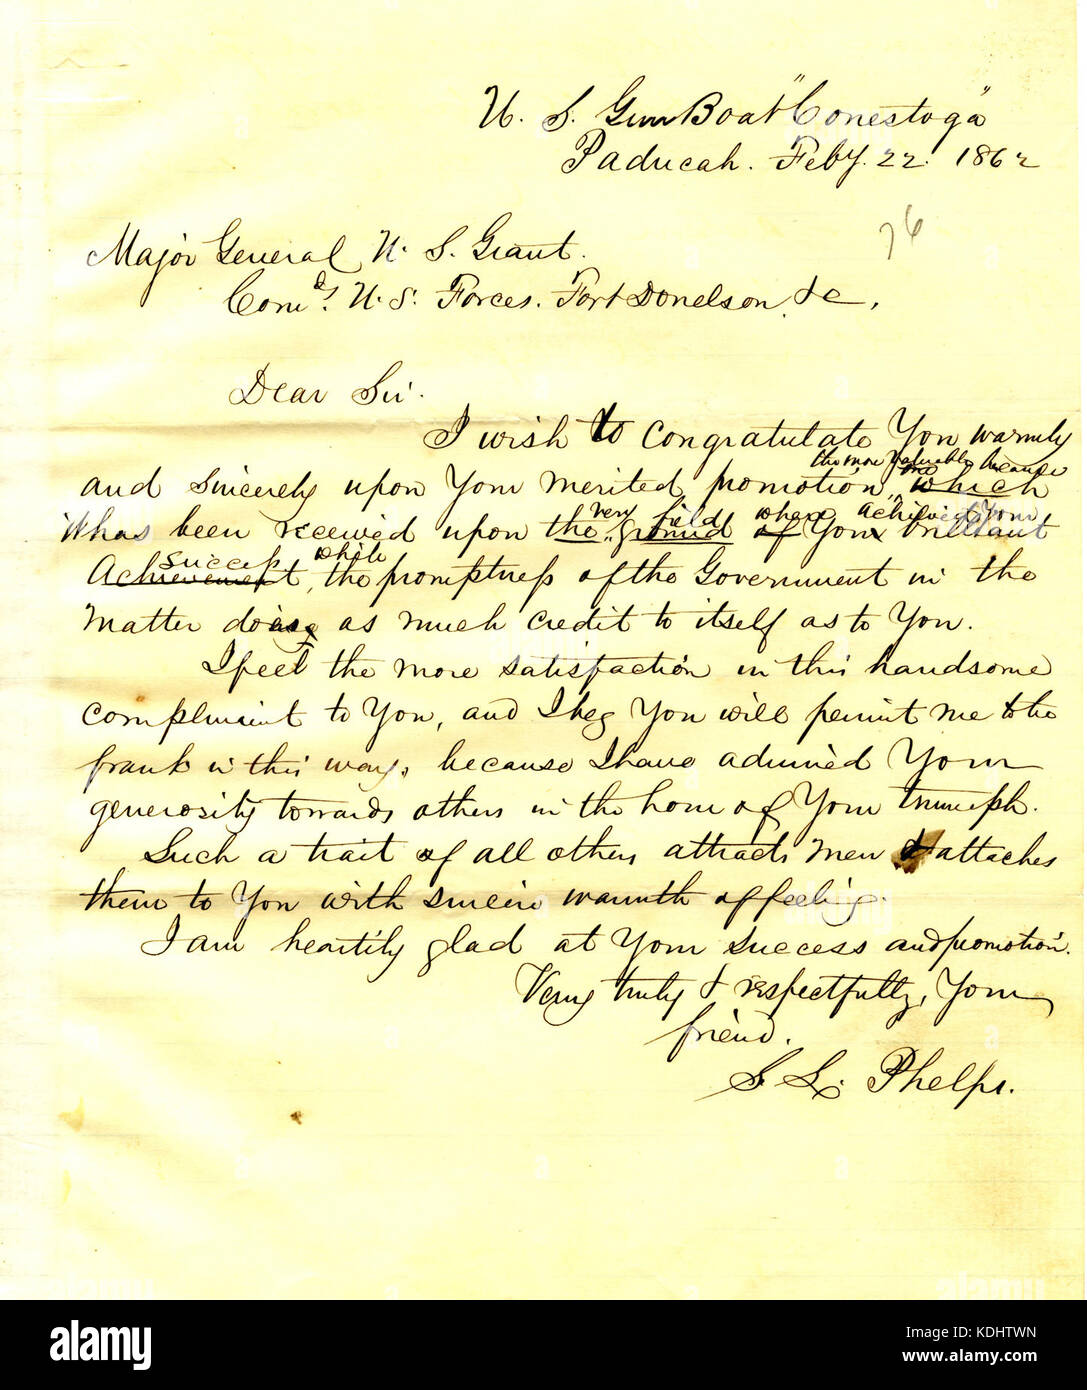 U. S. Gun Boat "Conestoga"
Paducah. Feby. 22. 1862
76
Major General U. S. Grant.
Comdg. U. S. Forces. Fort Donelson, &c,
Dear Sir.
I wish to congratulate You warmly
and sincerely upon Your merited promotion, the more valuable because which
it has been received upon the very ground field of where You achieved Your brilliant
Achievement success, while the promptness of the Government in the
matter doing as much credit to itself as to You.
I feel the more satisfaction in this handsome
compliment to You, and I beg You will permit me to be
frank in this way, because I have admired Your
generosity towards others in the hour of Your triumph.
Such a trait of all others attracts men & attaches
them to You with sincere warmth of feeling.
I am heartily glad at Your success and promotion.
Very truly & respectfully, Your
friend.
S. L. Phelps.
alamy
Image ID: KDHTWN
www.alamy.com